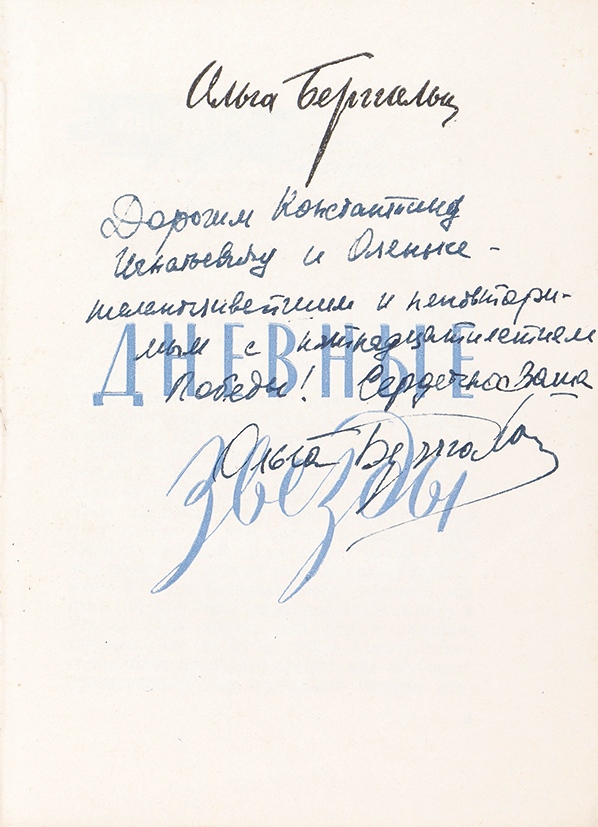 Ольга Берггольц
Дорогим Константину
Игнатьевичу и Оленьке -
и неповтори-
мым с пятнадцатилетием
Победы! Сердечно Ваша
ДНЕВНЫЕ
Ольга Берггольц
звезды